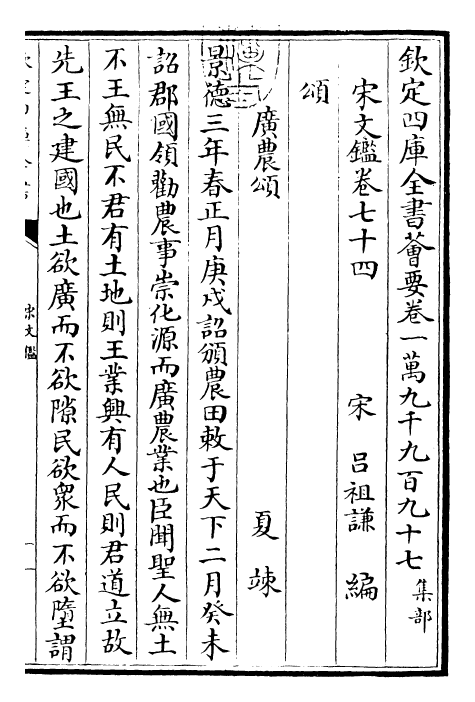 欽定四庫全書薈要卷一萬九千九百九十七 集部
宋文鑑卷七十四 宋 吕祖謙 編
頌
廣農頌 夏竦
景德三年春正月庚戌詔頒農田敕于天下二月癸未
詔郡國領勸農事崇化源而廣農業也臣聞聖人無土
不王無民不君有土地則王業興有人民則君道立故
先王之建國也土欲廣而不欲隙民欲衆而不欲墮謂
宋文鑑
一